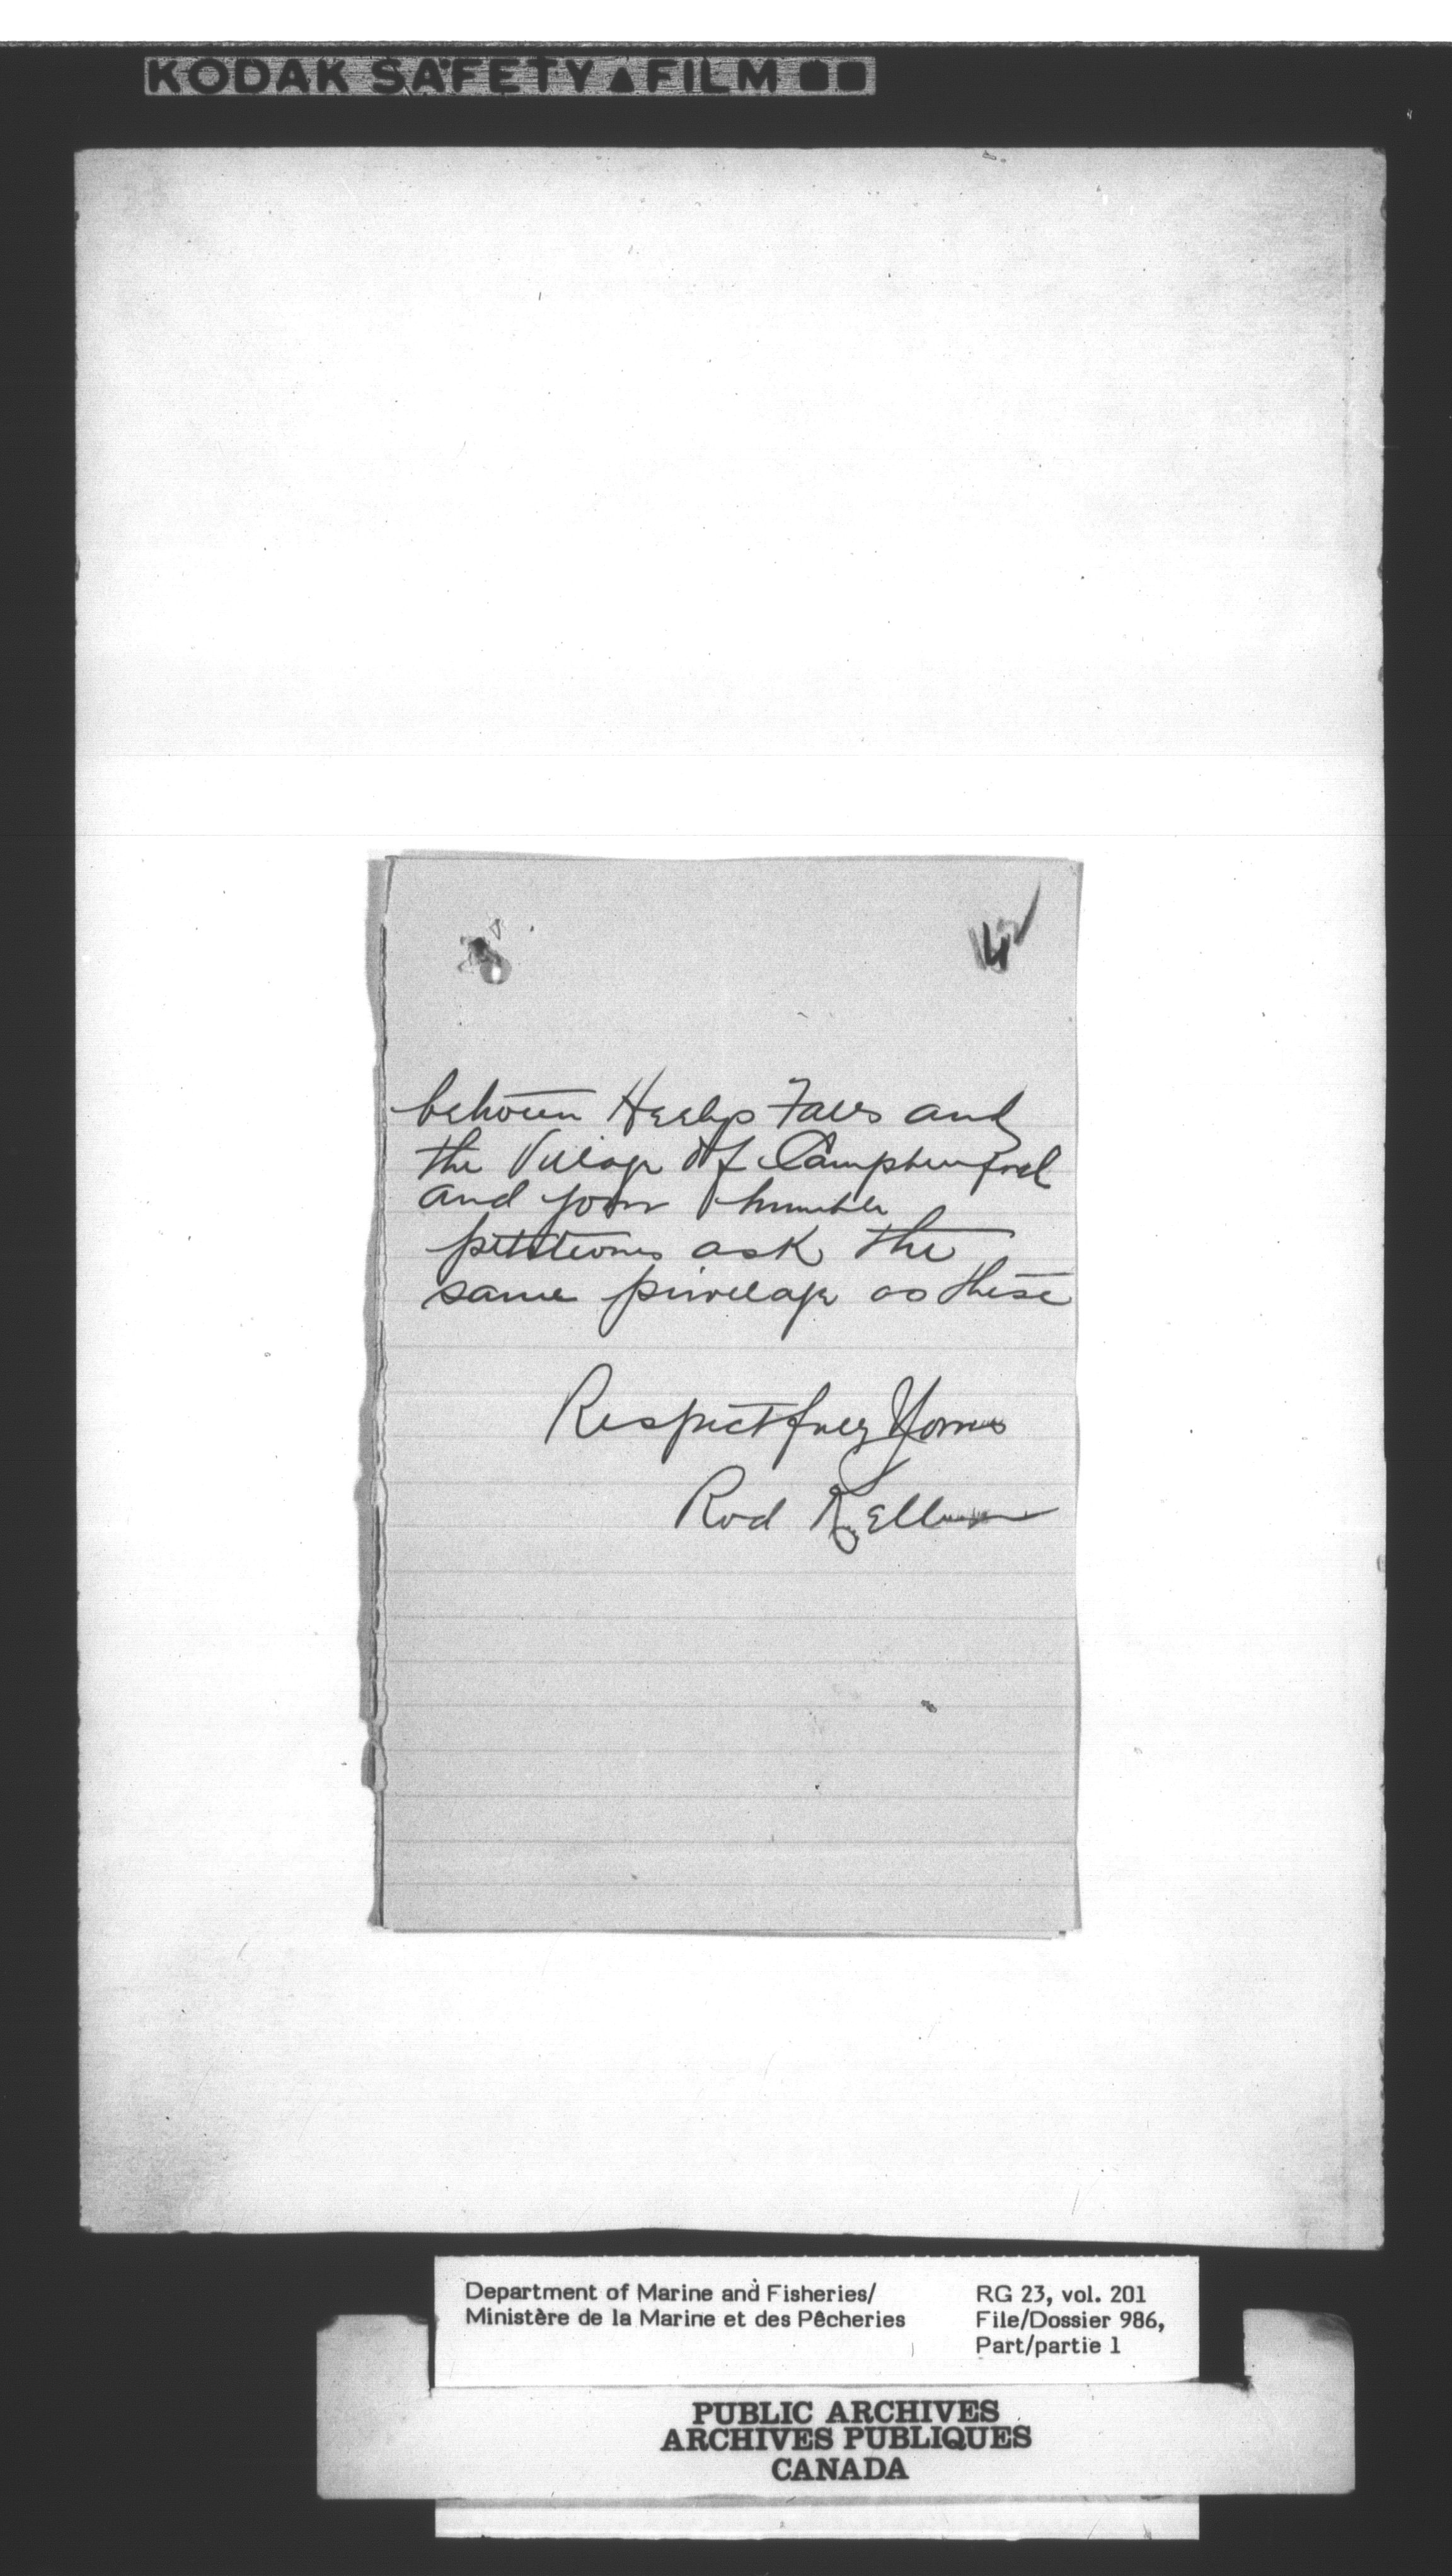 KODAK SAFETY FILM
4
between Heelys Falls and
the Village of Campbellford
and your humble
petitioners ask the
same privelage as these
Respectfully Yours
Rod
Department of Marine and Fisheries/
Ministère de la Marine et des Pêcheries
RG 23, vol. 201
File/Dossier 986,
Part/partie 1
PUBLIC ARCHIVES
ARCHIVES PUBLIQUES
CANADA